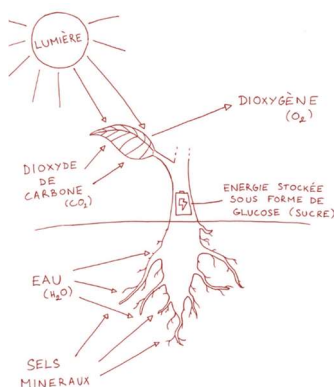 LUMIÈRE
DIOXYGÈNE
(O₂)
DIOXYDE
DE
CARBONE
(CO₂)
ENERGIE STOCKÉE
SOUS FORME DE
GLUCOSE (SUCRE)
EAU
(H₂O)
SELS
MINERAUX